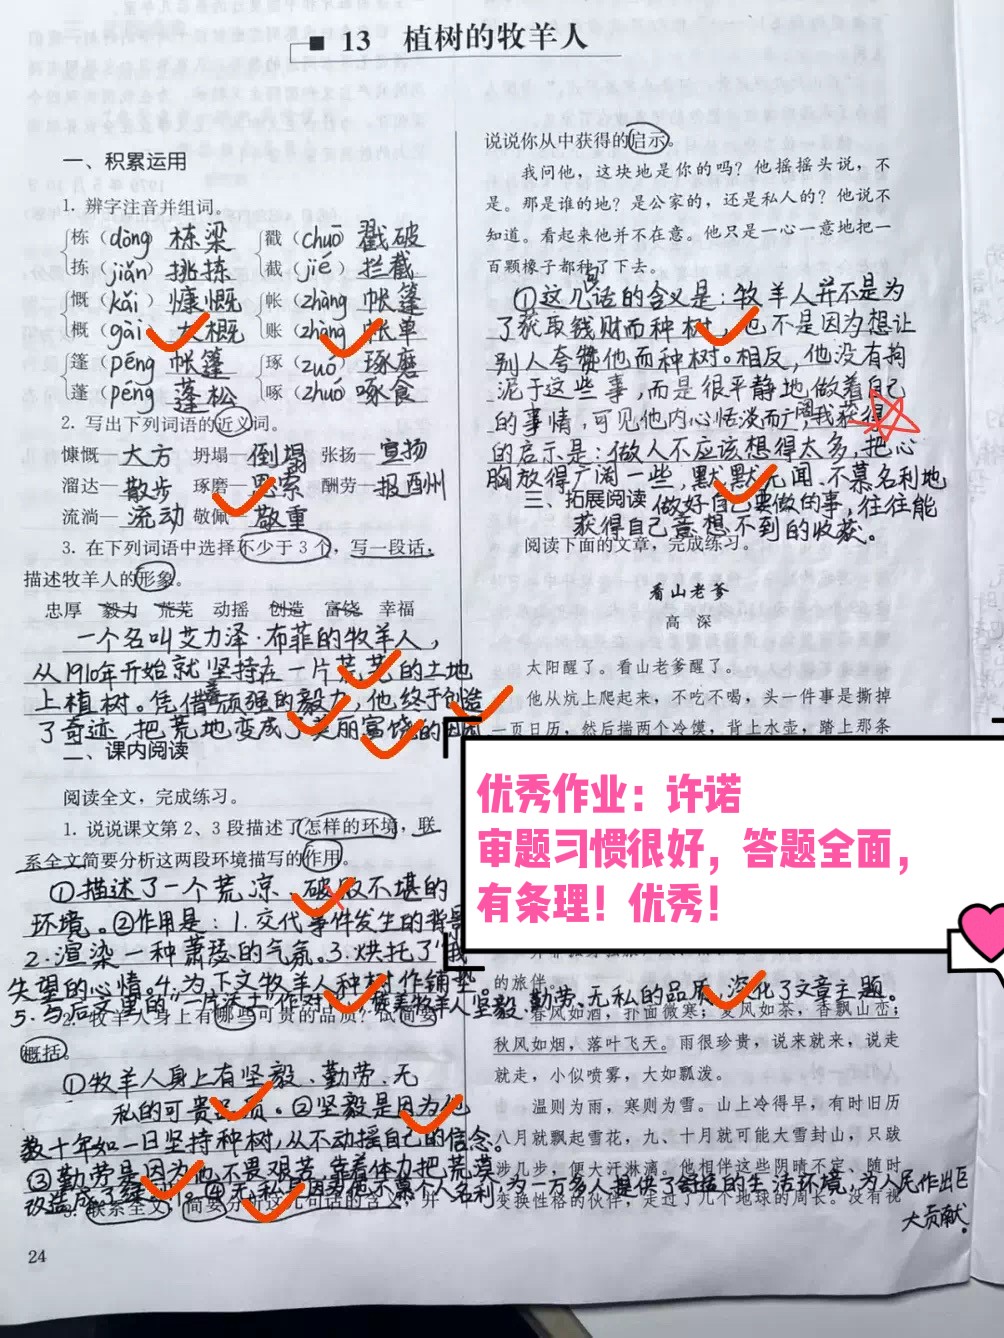 13 植树的牧羊人
一、积累运用
1. 辨字注音并组词。
栋（dòng 栋梁 戳（chuō 戳破
拣（jiǎn）挑拣 截（jié）拦截
慨（kǎi）慷慨 帐（zhàng 帐篷
概（gài 大概 账（zhàng 账单
篷（péng 帐篷 琢（zuó 琢磨
蓬（péng 蓬松 啄（zhuó 啄食
2. 写出下列词语的近义词。
慷慨—大方 坍塌—倒塌 张扬—宣扬
溜达—散步 琢磨—思索 酬劳—报酬
流淌—流动 敬佩—敬重
3. 在下列词语中选择不少于3个，写一段话，
描述牧羊人的形象。
忠厚 毅力 荒芜 动摇 创造 富饶 幸福
一个名叫艾力泽·布菲的牧羊人，
从1910年开始就坚持在一片荒芜的土地
上植树。凭借着顽强的毅力，他终于创造
了奇迹，把荒地变成了美丽富饶的田
二、课内阅读
阅读全文，完成练习。
1. 说说课文第2、3段描述了怎样的环境，联
系全文简要分析这两段环境描写的作用。
①描述了一个荒凉、破败不堪的
环境。②作用是：1.交代事件发生的背景
2.渲染一种萧瑟的气氛。3.烘托了"我
失望的心情。4.为下文牧羊人种树作铺垫。
5.与后文里的"一片沃土"作对 牧羊人坚毅、勤劳、无私的品质，深化了文章主题。
2. 牧羊人身上有哪些可贵的品质？试
概括。
①牧羊人身上有坚毅、勤劳、无
私的可贵品质。②坚毅是因为他
数十年如一日坚持种树，从不动摇自己的信念。
③勤劳是因为他不畏艰苦，靠着体力把荒漠
改造成了绿 ④无私是因为他不慕个人名利，为一万多人提供了舒适的生活环境，为人民作出巨
大贡献。
3. 联系全文，简要分析这几句话的含 ，并
24
说说你从中获得的启示。
我问他，这块地是你的吗？他摇摇头说，不
是。那是谁的地？是公家的，还是私人的？他说不
知道。看起来他并不在意。他只是一心一意地把一
百颗橡子都种了下去。
①这几句话的含义是：牧羊人并不是为
了获取钱财而种树，也不是因为想让
别人夸赞他而种树。相反，他没有拘
泥于这些事，而是很平静地做着自己
的事情，可见他内心恬淡而 我获得
的启示是：做人不应该想得太多，把心
胸放得广阔一些，默默无闻、不慕名利地
做好自己要做的事，往往能
获得自己意想不到的收获。
三、拓展阅读
阅读下面的文章，完成练习。
看山老爹
高 深
太阳醒了。看山老爹醒了。
他从炕上爬起来，不吃不喝，头一件事是撕掉
一页日历，然后揣两个冷馍，背上水壶，踏上那条
优秀作业：许诺
审题习惯很好，答题全面，
有条理！优秀！
的旅伴。
春风如酒，扑面微寒；夏风如茶，香飘山峦；
秋风如烟，落叶飞天。雨很珍贵，说来就来，说走
就走，小似喷雾，大如瓢泼。
温则为雨，寒则为雪。山上冷得早，有时旧历
八月就飘起雪花，九、十月就可能大雪封山，只跋
涉几步，便大汗淋漓。他相伴这些阴晴不定、随时
变换性格的伙伴，走过了几个地球的周长。没有视